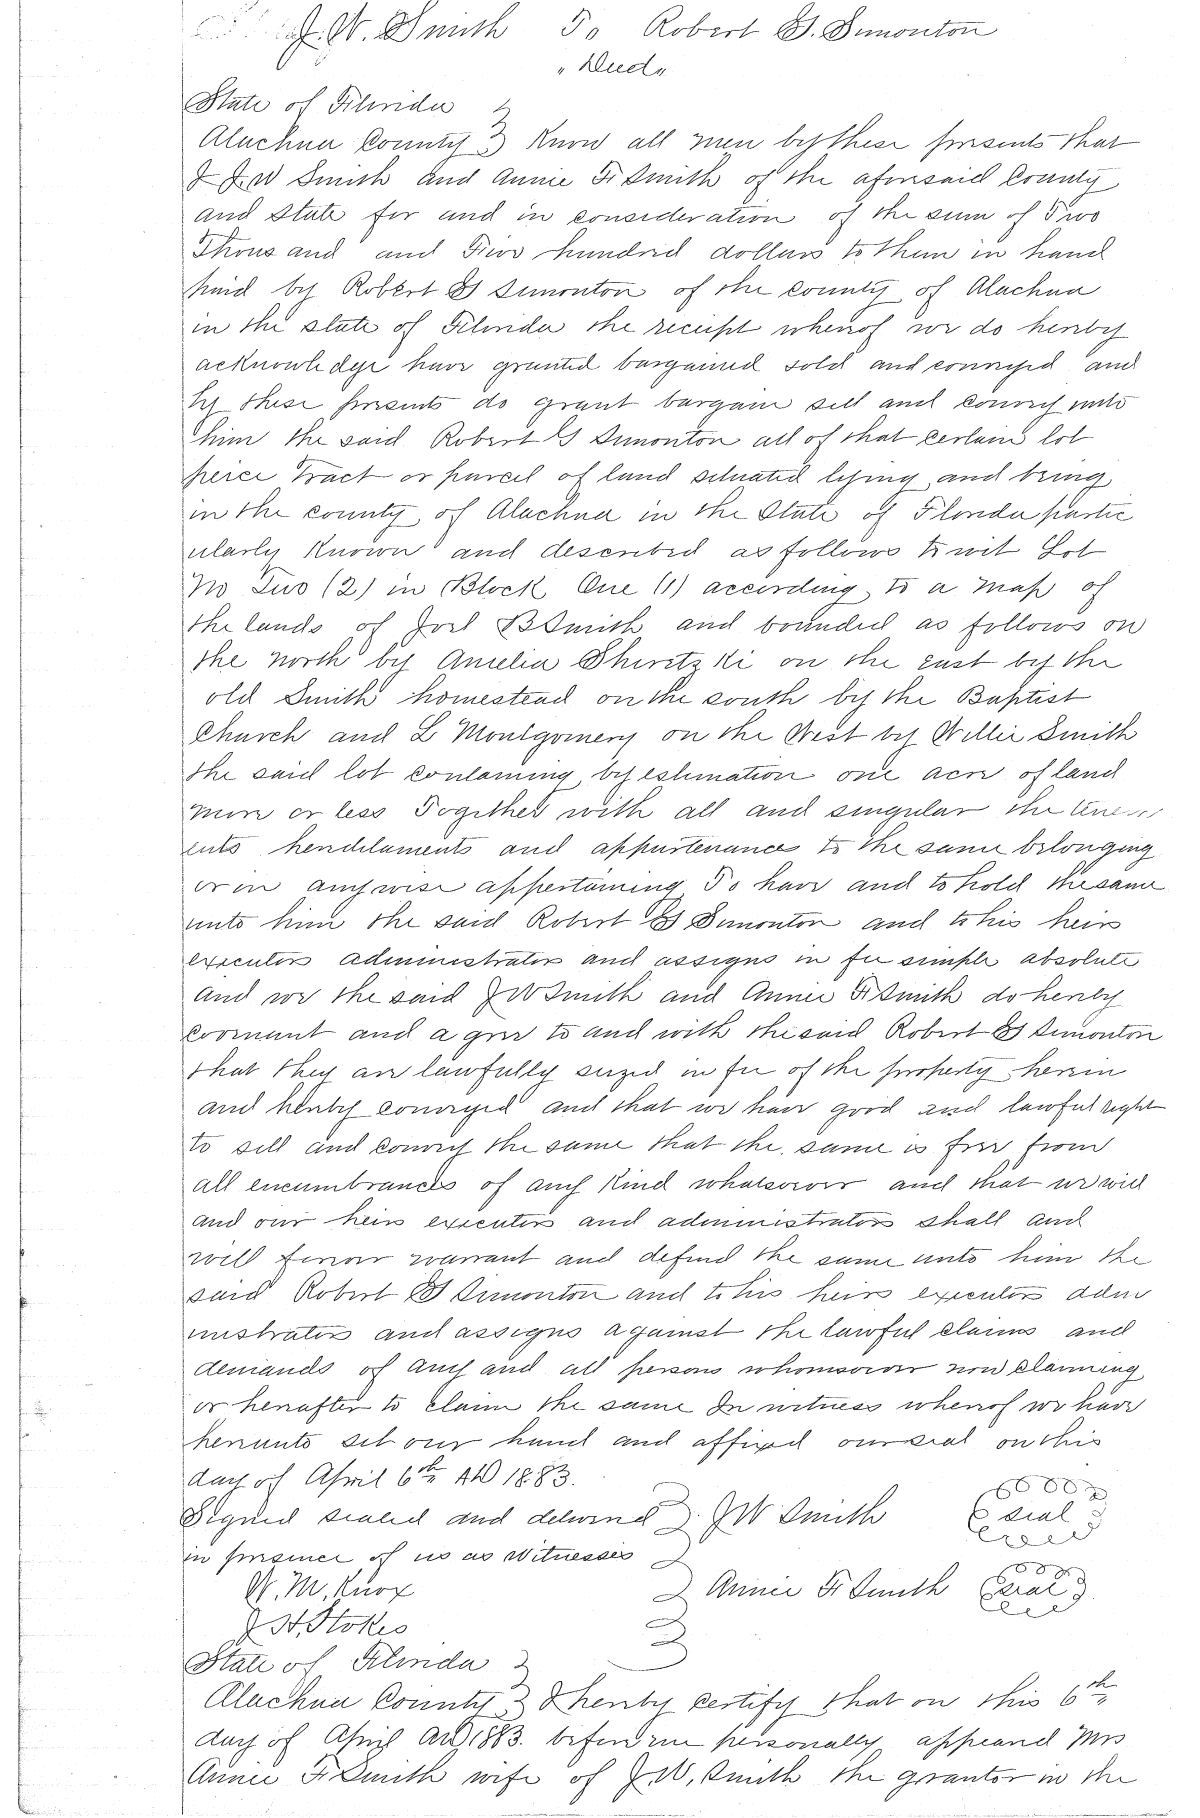 J. W. Smith To Robert G. Simonton
"Deed"
State of Florida
Alachua County } Know all men by these presents that
I J. W Smith and Annie F. Smith of the aforesaid County
and State for and in consideration of the sum of Two
Thousand and Two hundred dollars to them in hand
paid by Robert G Simonton of the county of Alachua
in the state of Florida the receipt whereof we do hereby
acknowledge have granted bargained sold and conveyed and
by these presents do grant bargain sell and convey unto
him the said Robert G Simonton all of that certain lot
peice tract or parcel of land situated lying and being
in the county of Alachua in the State of Florida partic
ularly Known and described as follows to wit Lot
No Two (2) in Block One (1) according to a map of
the lands of Joel B Smith and bounded as follows on
the north by Amelia Shiretzki on the east by the
old Smith homestead on the south by the Baptist
Church and L Montgomery on the West by Willie Smith
the said lot containing by estimation one acre of land
more or less Together with all and singular the tenem
ents hereditaments and appurtenances to the same belonging
or in anywise appertaining To have and to hold the same
unto him the said Robert G Simonton and to his heirs
executors administrators and assigns in fee simple absolute
and we the said J W Smith and Annie F. Smith do hereby
covenant and agree to and with the said Robert G Simonton
that they are lawfully seized in fee of the property herein
and hereby conveyed and that we have good and lawful right
to sell and convey the same that the same is free from
all encumbrances of any Kind whatsoever and that we will
and our heirs executors and administrators shall and
will forever warrant and defend the same unto him the
said Robert G Simonton and to his heirs executors adm
inistrators and assigns against the lawful claims and
demands of any and all persons whomsoever now claiming
or hereafter to claim the same In witness whereof we have
hereunto set our hand and affixed our seal on this
day of April 6th AD 1883.
Signed sealed and delivered } J W Smith seal
in presence of us as Witnesses
W. M. Knox } Annie F. Smith seal
J H. Stokes
State of Florida
Alachua County } I hereby certify that on this 6th
day of April AD 1883. before me personally appeared Mrs
Annie F. Smith wife of J. W. Smith the grantor in the